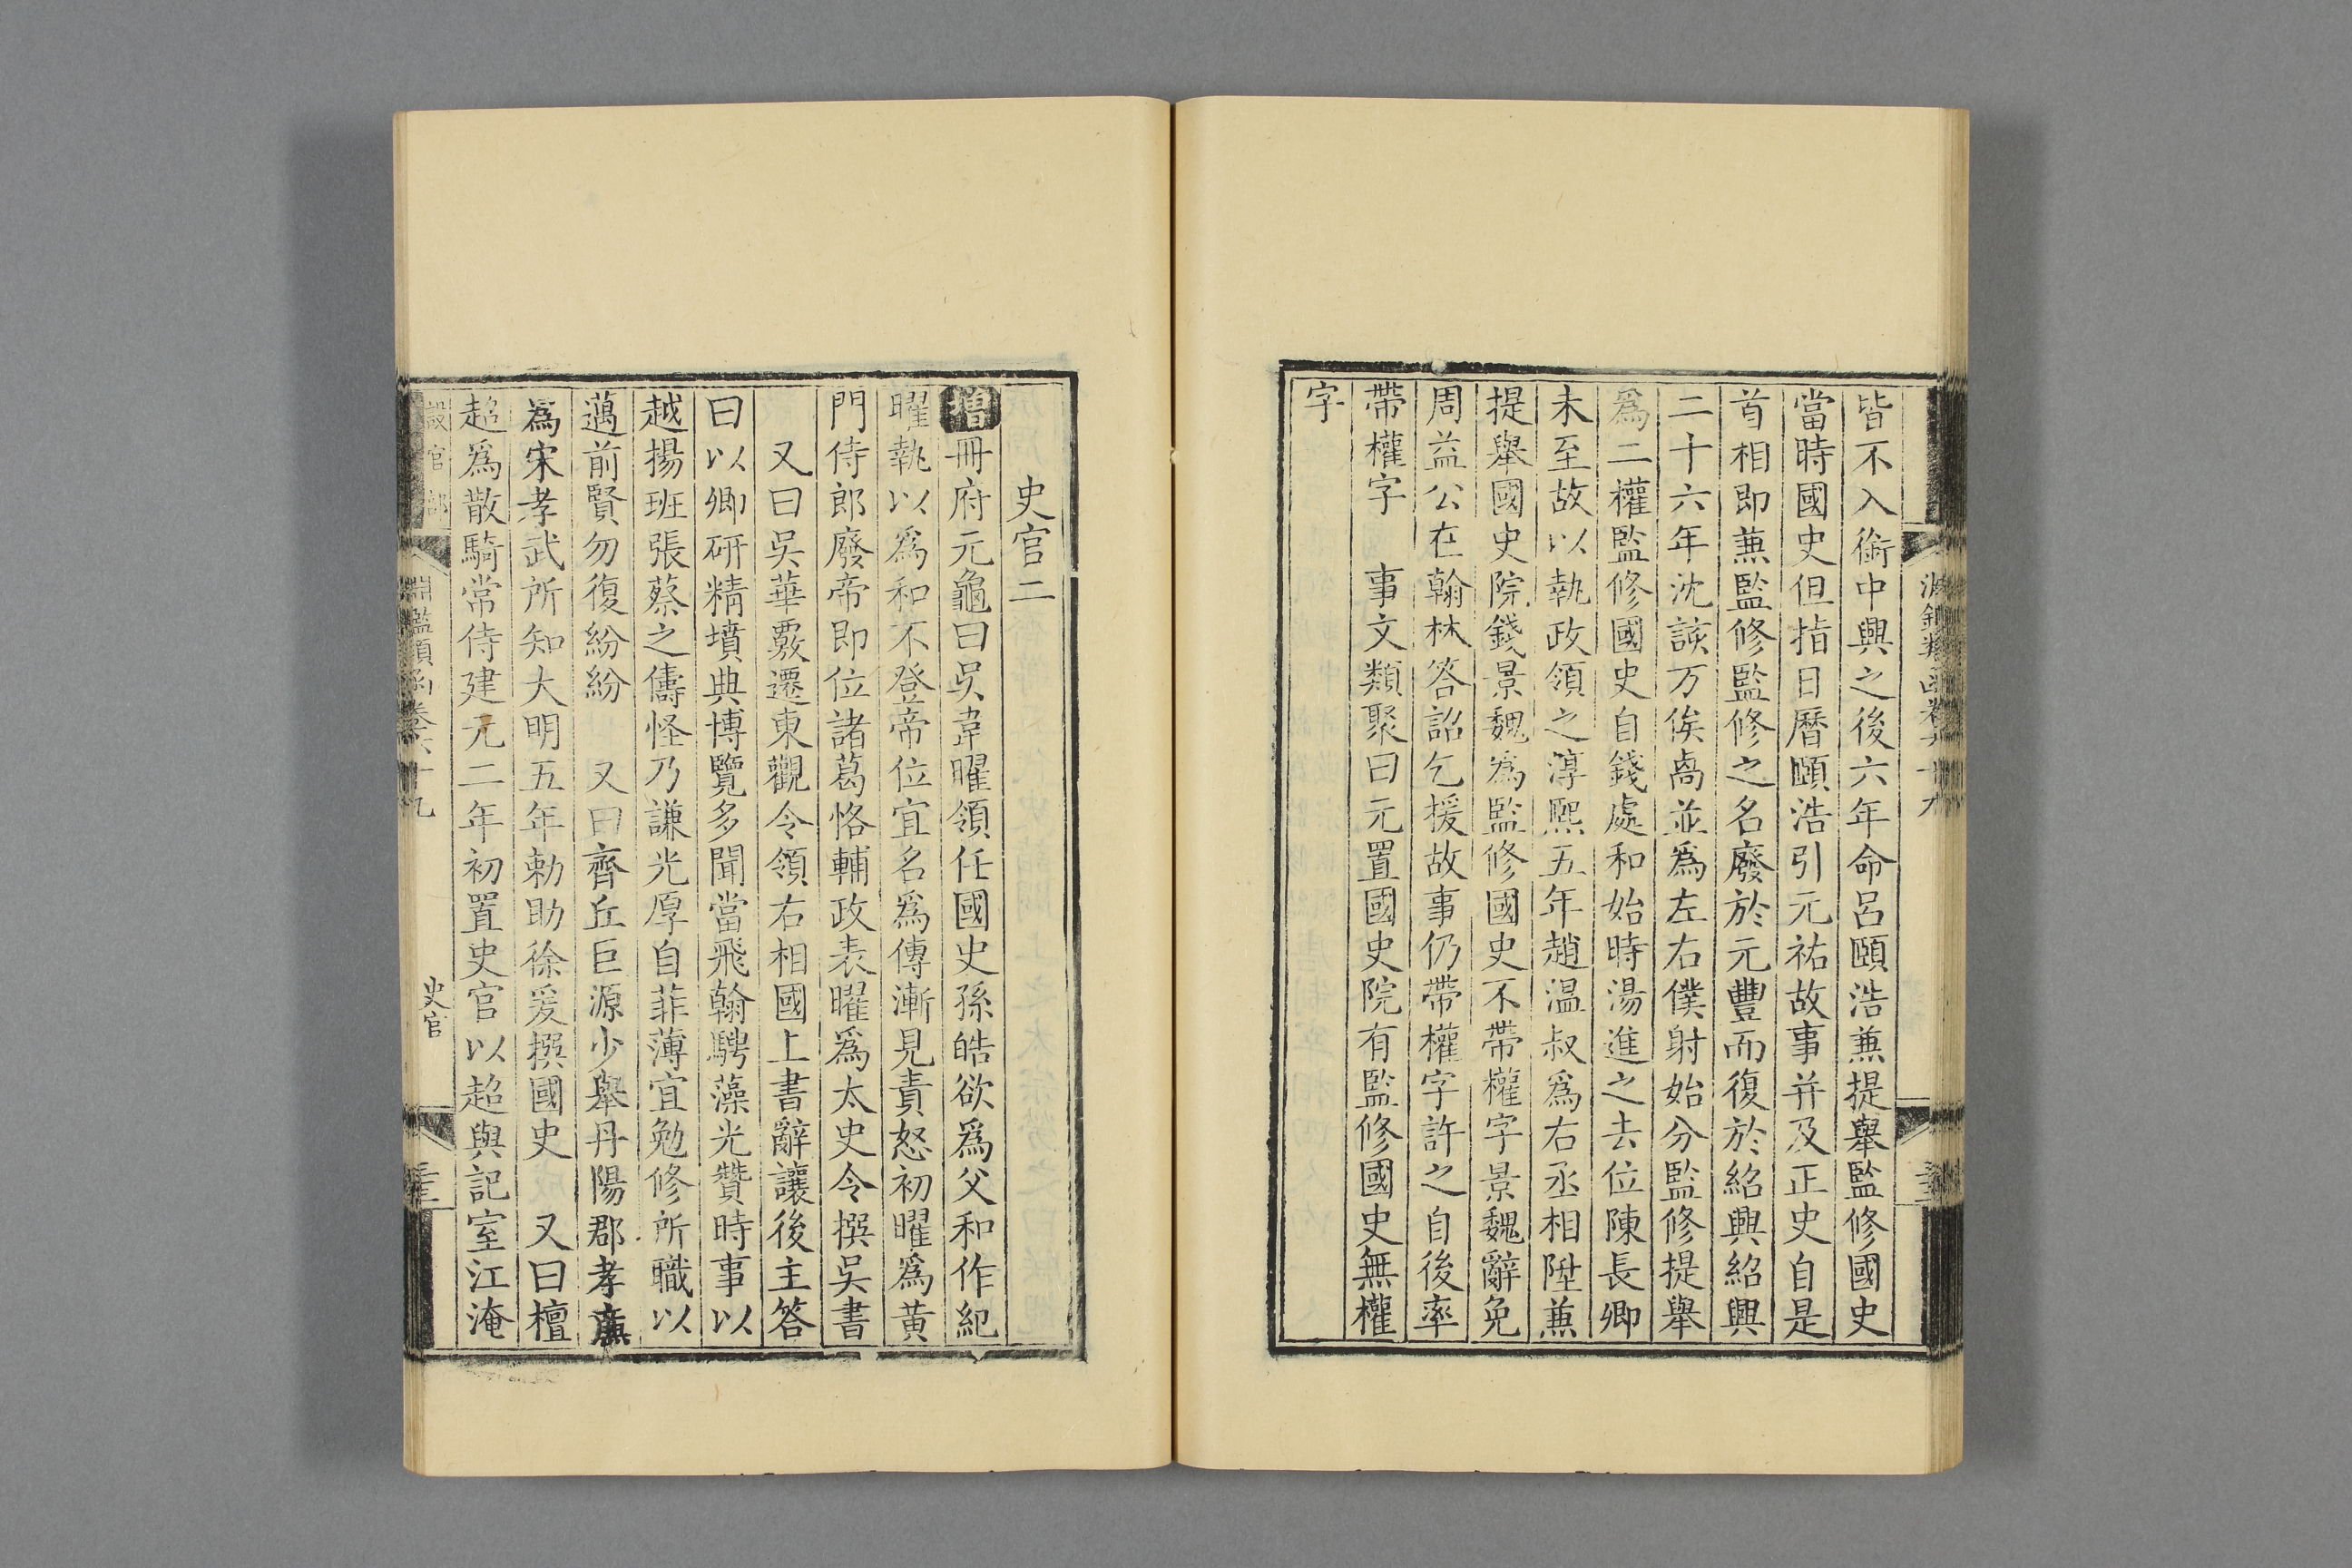 皆不入銜中興之後六年命呂頤浩兼提舉監修國史
當時國史但指日曆頤浩引元祐故事并及正史自是
首相即兼監修監修之名廢於元豐而復於紹興紹興
二十六年沈該万俟卨並爲左右僕射始分監修提舉
爲二權監修國史自錢處和始時湯進之去位陳長卿
未至故以執政領之淳熙五年趙温叔爲右丞相陞兼
提舉國史院錢景魏爲監修國史不帶權字景魏辭免
周益公在翰林答詔乞援故事仍帶權字許之自後率
帶權字 事文類聚曰元置國史院有監修國史無權
字
史官二
增冊府元龜曰吳韋曜領任國史孫皓欲爲父和作紀
曜執以爲和不登帝位宜名爲傳漸見責怒初曜爲黄
門侍郎廢帝即位諸葛恪輔政表曜爲太史令撰吳書
又曰吳華覈遷東觀令領右相國上書辭讓後主答
曰以卿研精墳典博覽多聞當飛翰騁藻光贊時事以
越揚班張蔡之儔怪乃謙光厚自菲薄宜勉修所職以
邁前賢勿復紛紛 又曰齊丘巨源少舉丹陽郡孝廉
爲宋孝武所知大明五年勅助徐爰撰國史 又曰檀
超爲散騎常侍建元二年初置史官以超與記室江淹
設官部 淵鑑類函卷六十九 史官